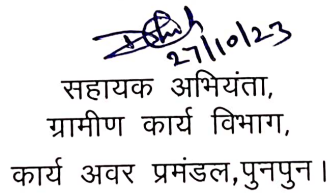 27/10/23
सहायक अभियंता,
ग्रामीण कार्य विभाग,
कार्य अवर प्रमंडल,पुनपुन।